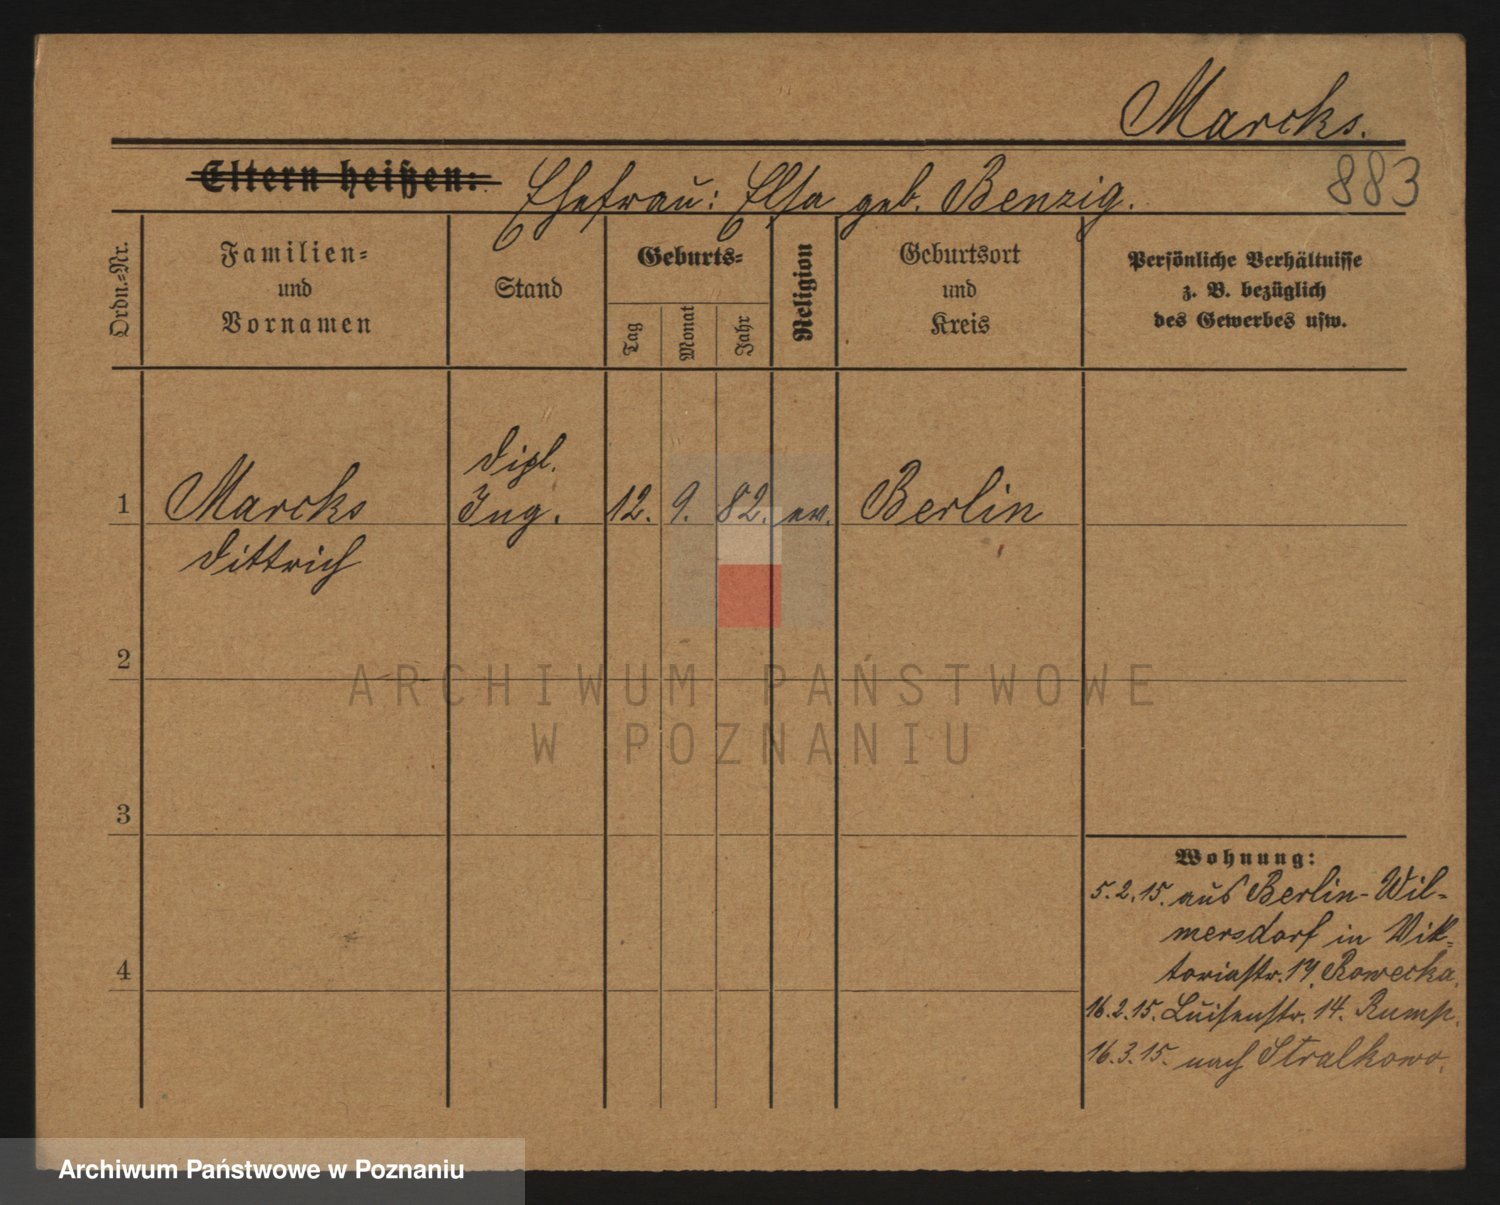 Marcks.
883
Eltern heißen: Ehefrau: Elsa geb. Benzig.
Ordn.-Nr.
Familien-
und
Vornamen
Stand
Geburts-
Tag
Monat
Jahr
Religion
Geburtsort
und
Kreis
Persönliche Verhältnisse
z. B. bezüglich
des Gewerbes usw.
Dipl.
1 Marcks Ing. 12. 9. 82. ev. Berlin
Dittrich
2
3
4
Wohnung:
5.2.15. aus Berlin-Wil-
mersdorf in Vik-
toriastr. 17. Rowecka.
16.2.15. Luisenstr. 14. Rump.
16.3.15. nach Stralkowo.
ARCHIWUM PAŃSTWOWE
W POZNANIU
Archiwum Państwowe w Poznaniu